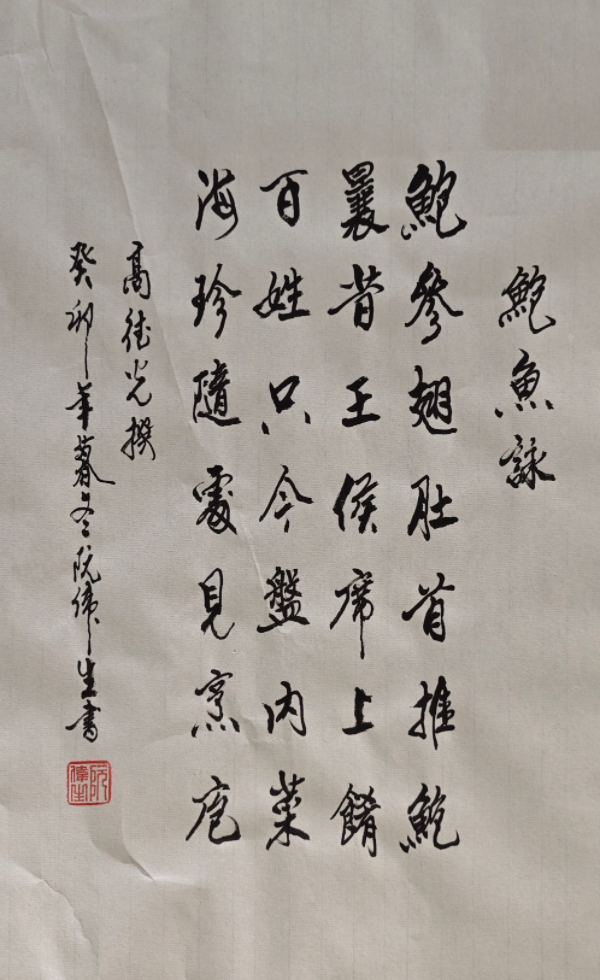 鮑魚詠
鮑參翅肚首推鮑
曩昔王侯席上餚
百姓只今盤內菜
海珍隨處見烹庖
高德光撰
癸卯年暮冬阮偉生書
阮偉生